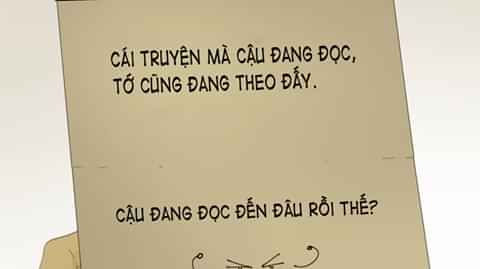 CÁI TRUYỆN MÀ CẬU ĐANG ĐỌC,
TỚ CŨNG ĐANG THEO ĐẤY.
CẬU ĐANG ĐỌC ĐẾN ĐÂU RỒI THẾ?